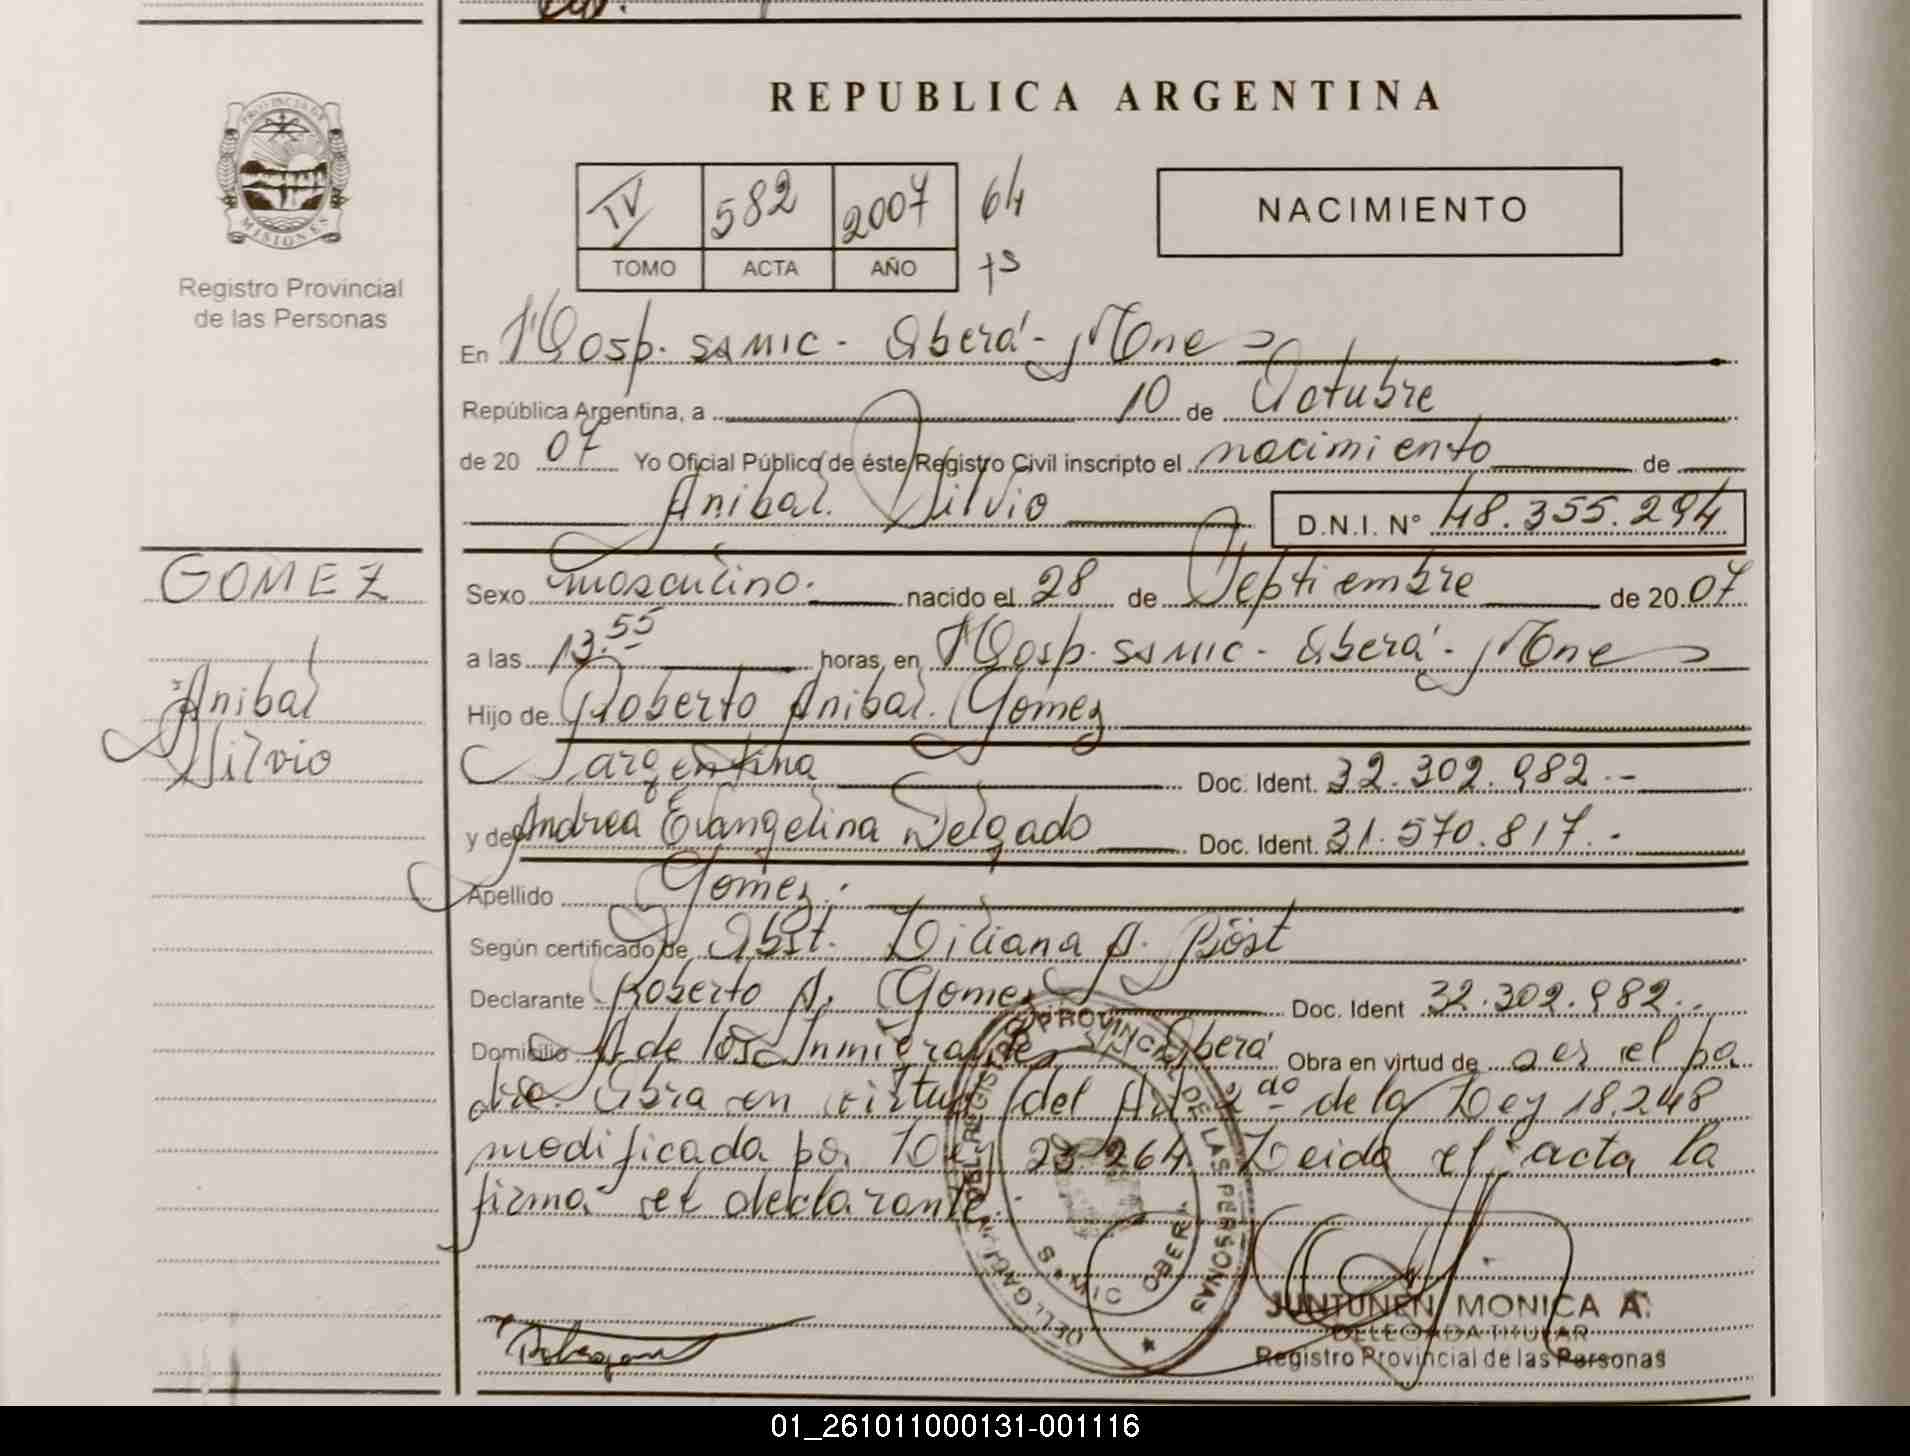 REPUBLICA ARGENTINA
PROVINCIA DE MISIONES
Registro Provincial
de las Personas
IV 582 2007 64
TOMO ACTA AÑO
NACIMIENTO
En Hosp. SAMIC - Oberá - Mnes
República Argentina, a 10 de Octubre
de 20 07 Yo Oficial Público de éste Registro Civil inscripto el nacimiento de
Anibal Silvio D.N.I. N° 48.355.294
GOMEZ
Anibal
Silvio
Sexo masculino. nacido el 28 de Septiembre de 20 07
a las 13.55 horas, en Hosp. SAMIC - Oberá - Mnes
Hijo de Roberto Anibal Gomez
argentina Doc. Ident. 32.302.982.-
y de Andrea Evangelina Delgado Doc. Ident. 31.570.817.-
Apellido Gomez.
Según certificado de Obst. Liliana A. Böst
Declarante Roberto A. Gomez Doc. Ident 32.302.982..
Domicilio A de los Inmigrantes Oberá Obra en virtud de ser el pa
dre. Obra en virtud del Art 2do de la Ley 18.248
modificada por Ley 23.264 Leida el acta la
firma el declarante.
REGISTRO PROVINCIAL DE LAS PERSONAS
OBERA
JUNTUNEN MONICA A.
DELEGADA TITULAR
Registro Provincial de las Personas
01_261011000131-001116